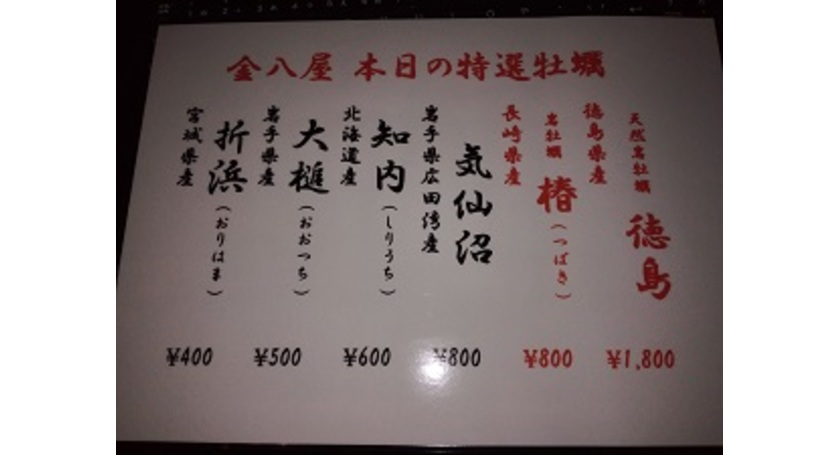 金八屋 本日の特選牡蠣
天然岩牡蠣 徳島
徳島県産
¥1,800
岩牡蠣 椿(つばき)
長崎県産
¥800
気仙沼
岩手県広田湾産
¥800
知内(しりうち)
北海道産
¥600
大槌(おおつち)
岩手県産
¥500
折浜(おりはま)
宮城県産
¥400